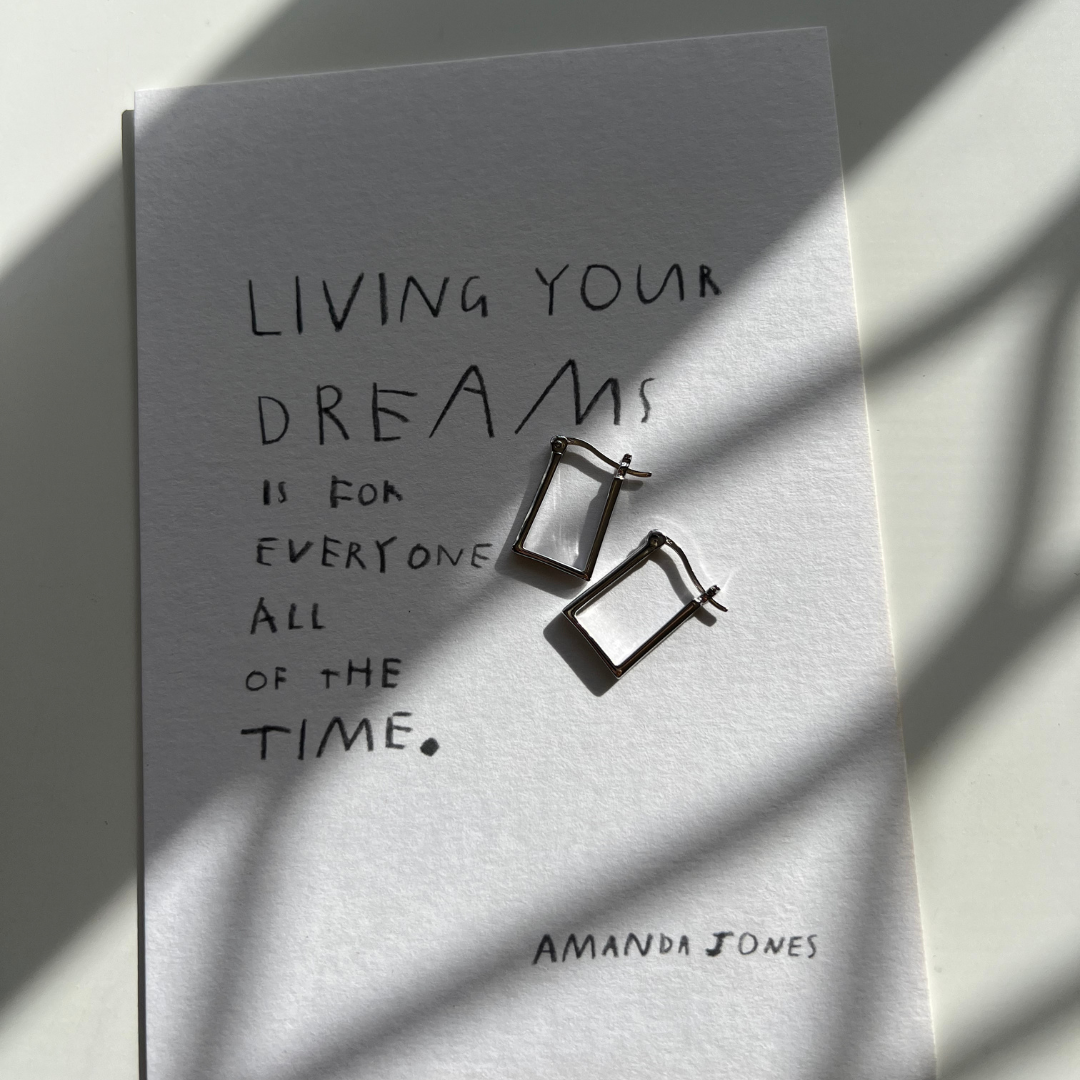 LIVING YOUR
DREAMS
IS FOR
EVERYONE
ALL
OF THE
TIME.
AMANDA JONES